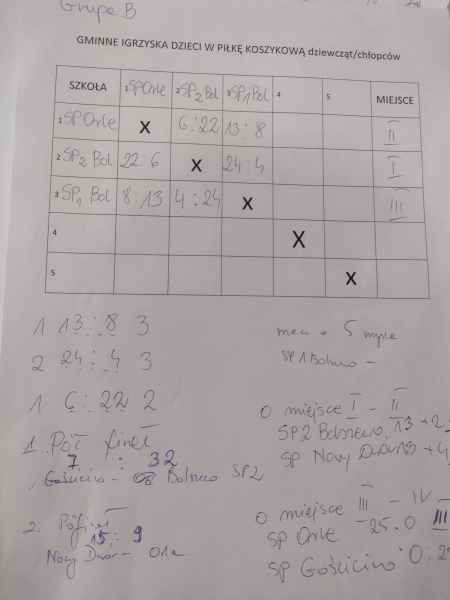 Grupa B
GMINNE IGRZYSKA DZIECI W PIŁKĘ KOSZYKOWĄ dziewcząt/chłopców
SZKOŁA 1 SP Orle 2 SP2 Bol 3 SP1 Bol 4 5 MIEJSCE
1 SP Orle X 6:22 13:8 II
2 SP2 Bol 22:6 X 24:4 I
3 SP1 Bol 8:13 4:24 X III
4 X
5 X
1 13:8 3
2 24:4 3
1 6:22 2
1. Pół finał
7 : 32
Gościcino - Bolszewo SP2
2. Półfinał
15 : 9
Nowy Dwór - Orle
mecz o 5
SP 1 Bolszewo -
O miejsce I - II
SP2 Bolszewo 13
SP Nowy Dwór
O miejsce III - IV
SP Orle 25:0 III
SP Gościcino 0: